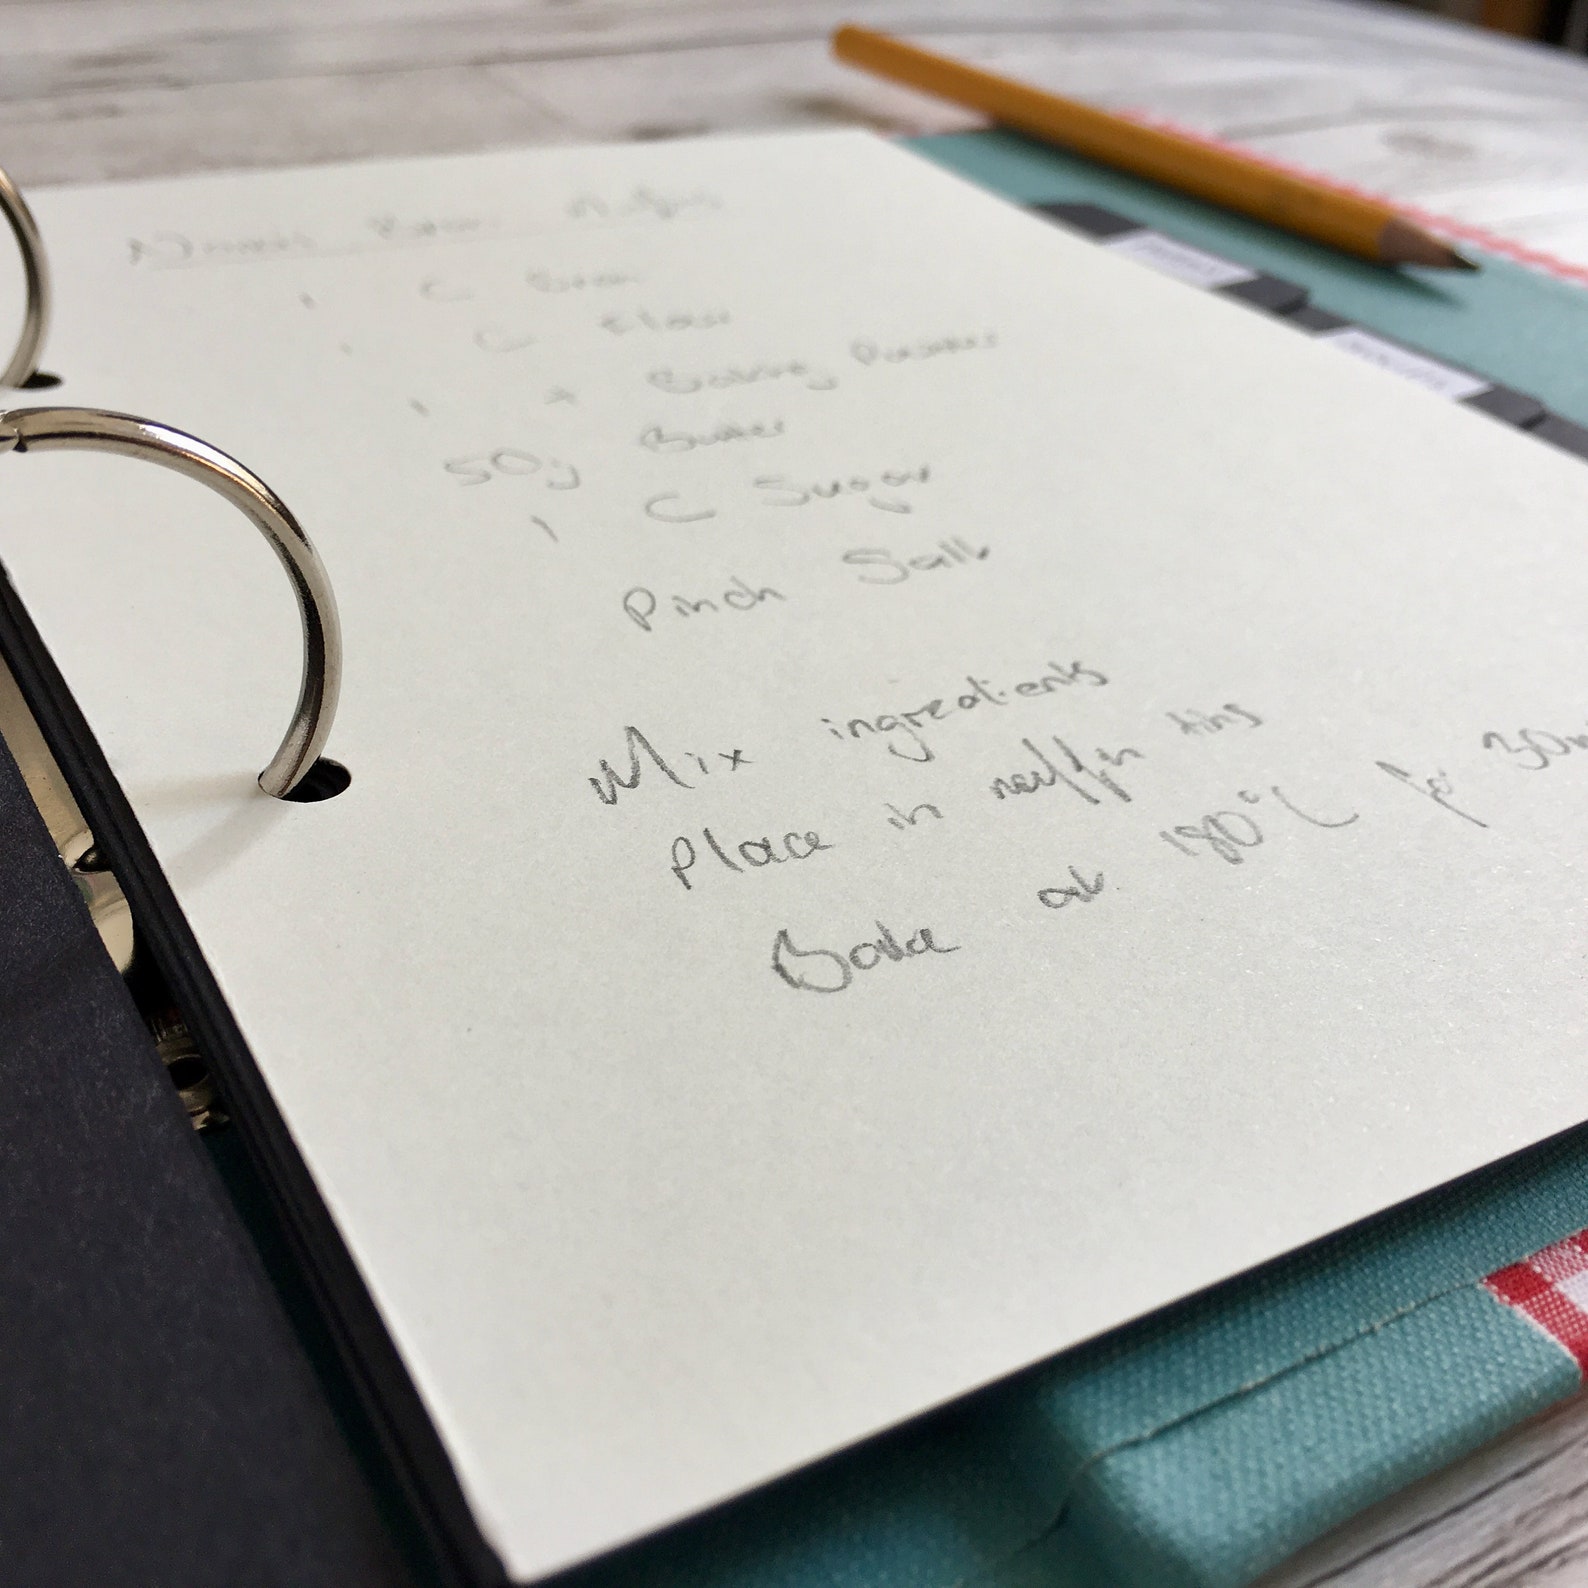 Bran
1 C Bran
1 C Flour
1 Baking Powder
50g Butter
1 C Sugar
Pinch Salt
Mix ingredients
Place in muffin tins
Bake at 180°C for 30